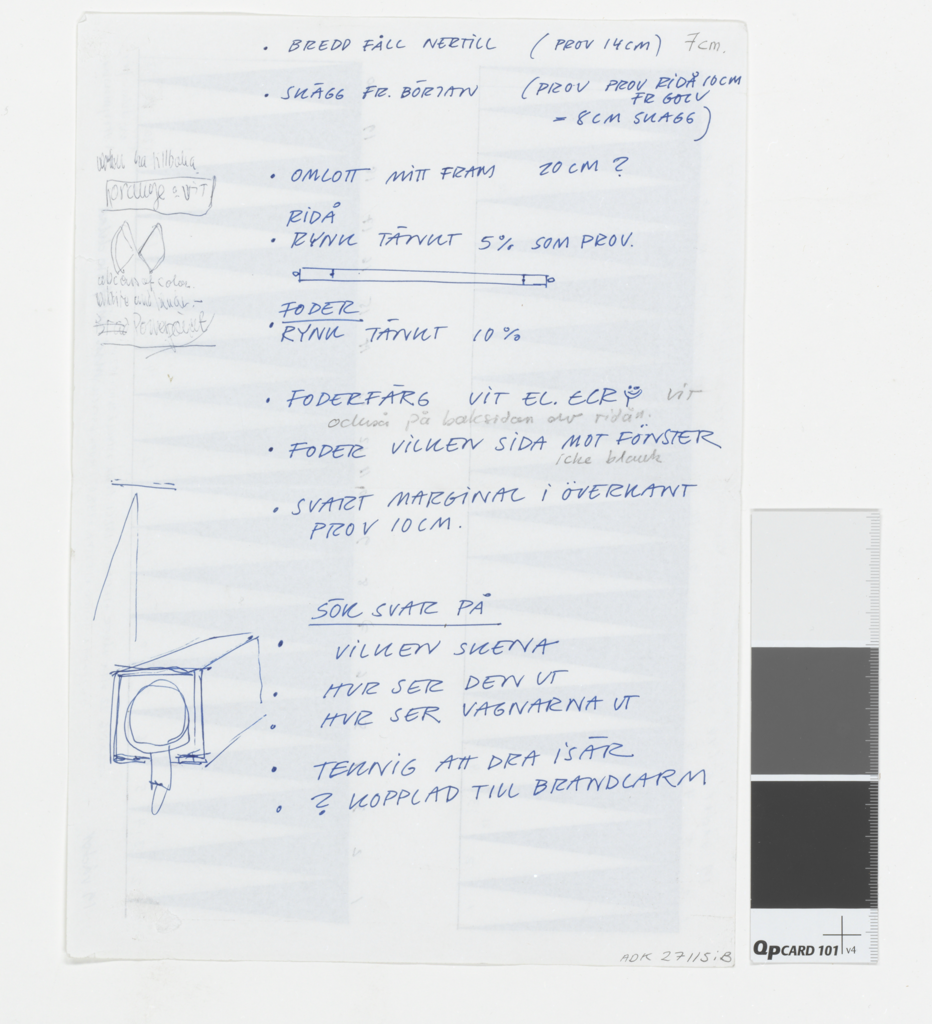 • BREDD FÅLL NERTILL (PROV 14CM) 7cm.
• SKÄGG FR. BÖRJAN (PROV PROV RIDÅ 10CM
FR GOLV
= 8CM SKÄGG)
tillbaka
orange = vit
• OMLOTT MITT FRAM 20CM ?
RIDÅ
• RYNK TÄNKT 5% SOM PROV.
FODER
• RYNK TÄNKT 10%
• FODERFÄRG VIT EL. ECRY vit
också på baksidan av ridån.
• FODER VILKEN SIDA MOT FÖNSTER
icke blank
• SVART MARGINAL I ÖVERKANT
PROV 10CM.
SÖK SVAR PÅ
• VILKEN SKENA
• HUR SER DEN UT
• HUR SER VAGNARNA UT
• TEKNIG ATT DRA ISÄR
• ? KOPPLAD TILL BRANDLARM
ADK 27115:B
QPCARD 101 v4